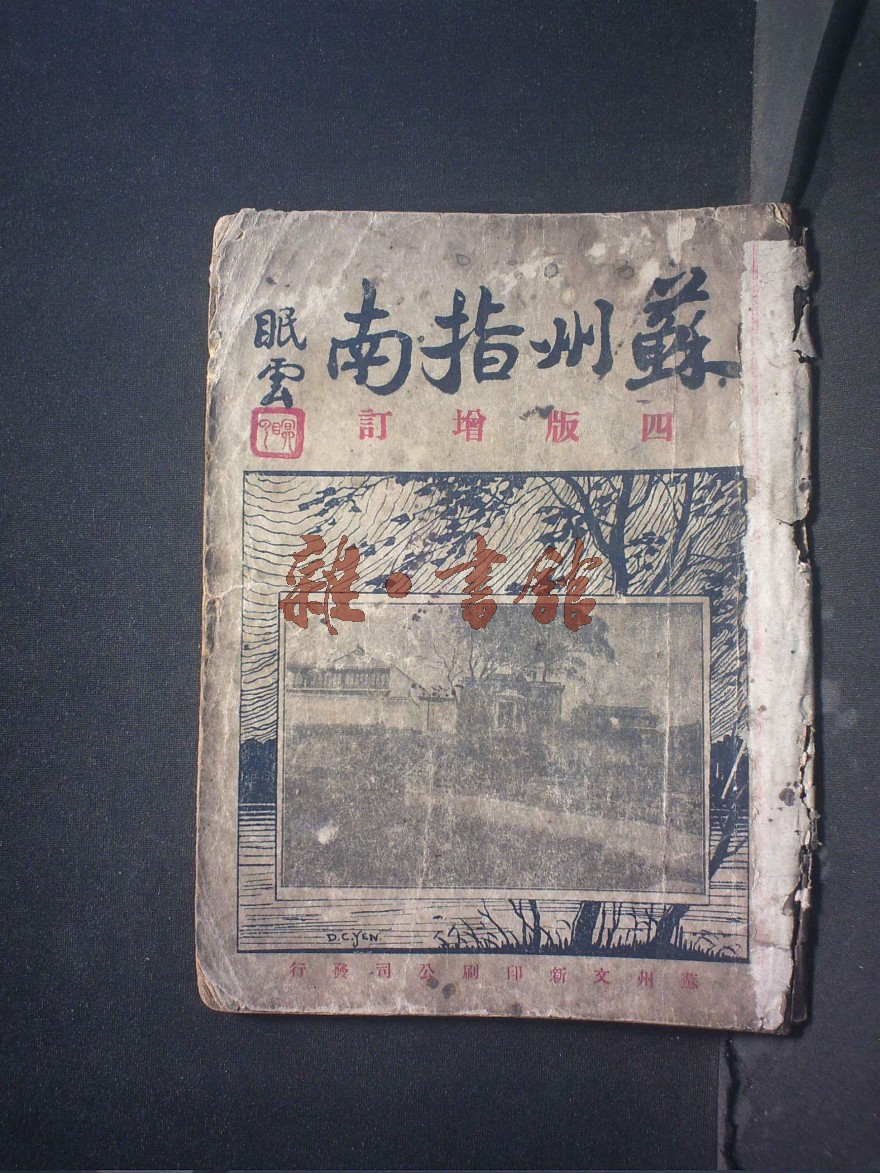 蘇州指南
眠雲
四版增訂
雜·書館
D.C.YEN.
蘇州文新印刷公司發行